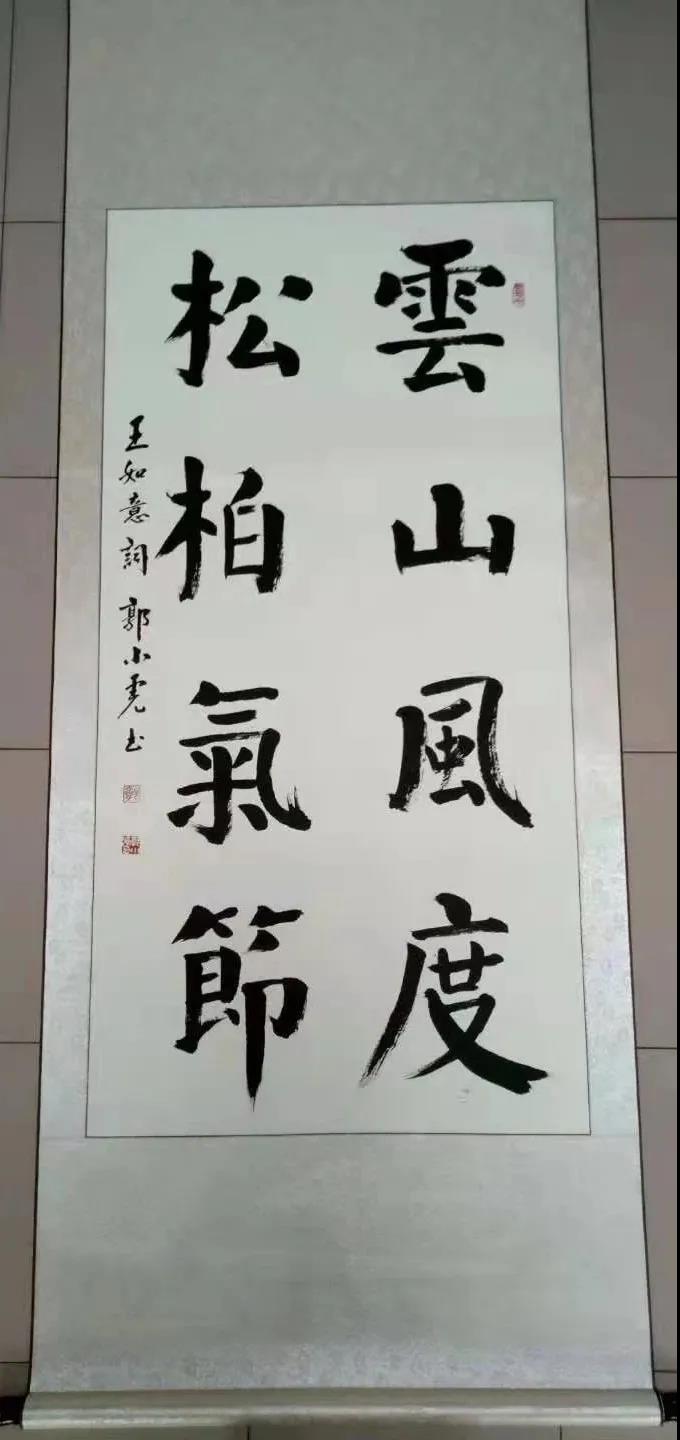 雲山風度
松柏氣節
王如意詞 郭小虎书